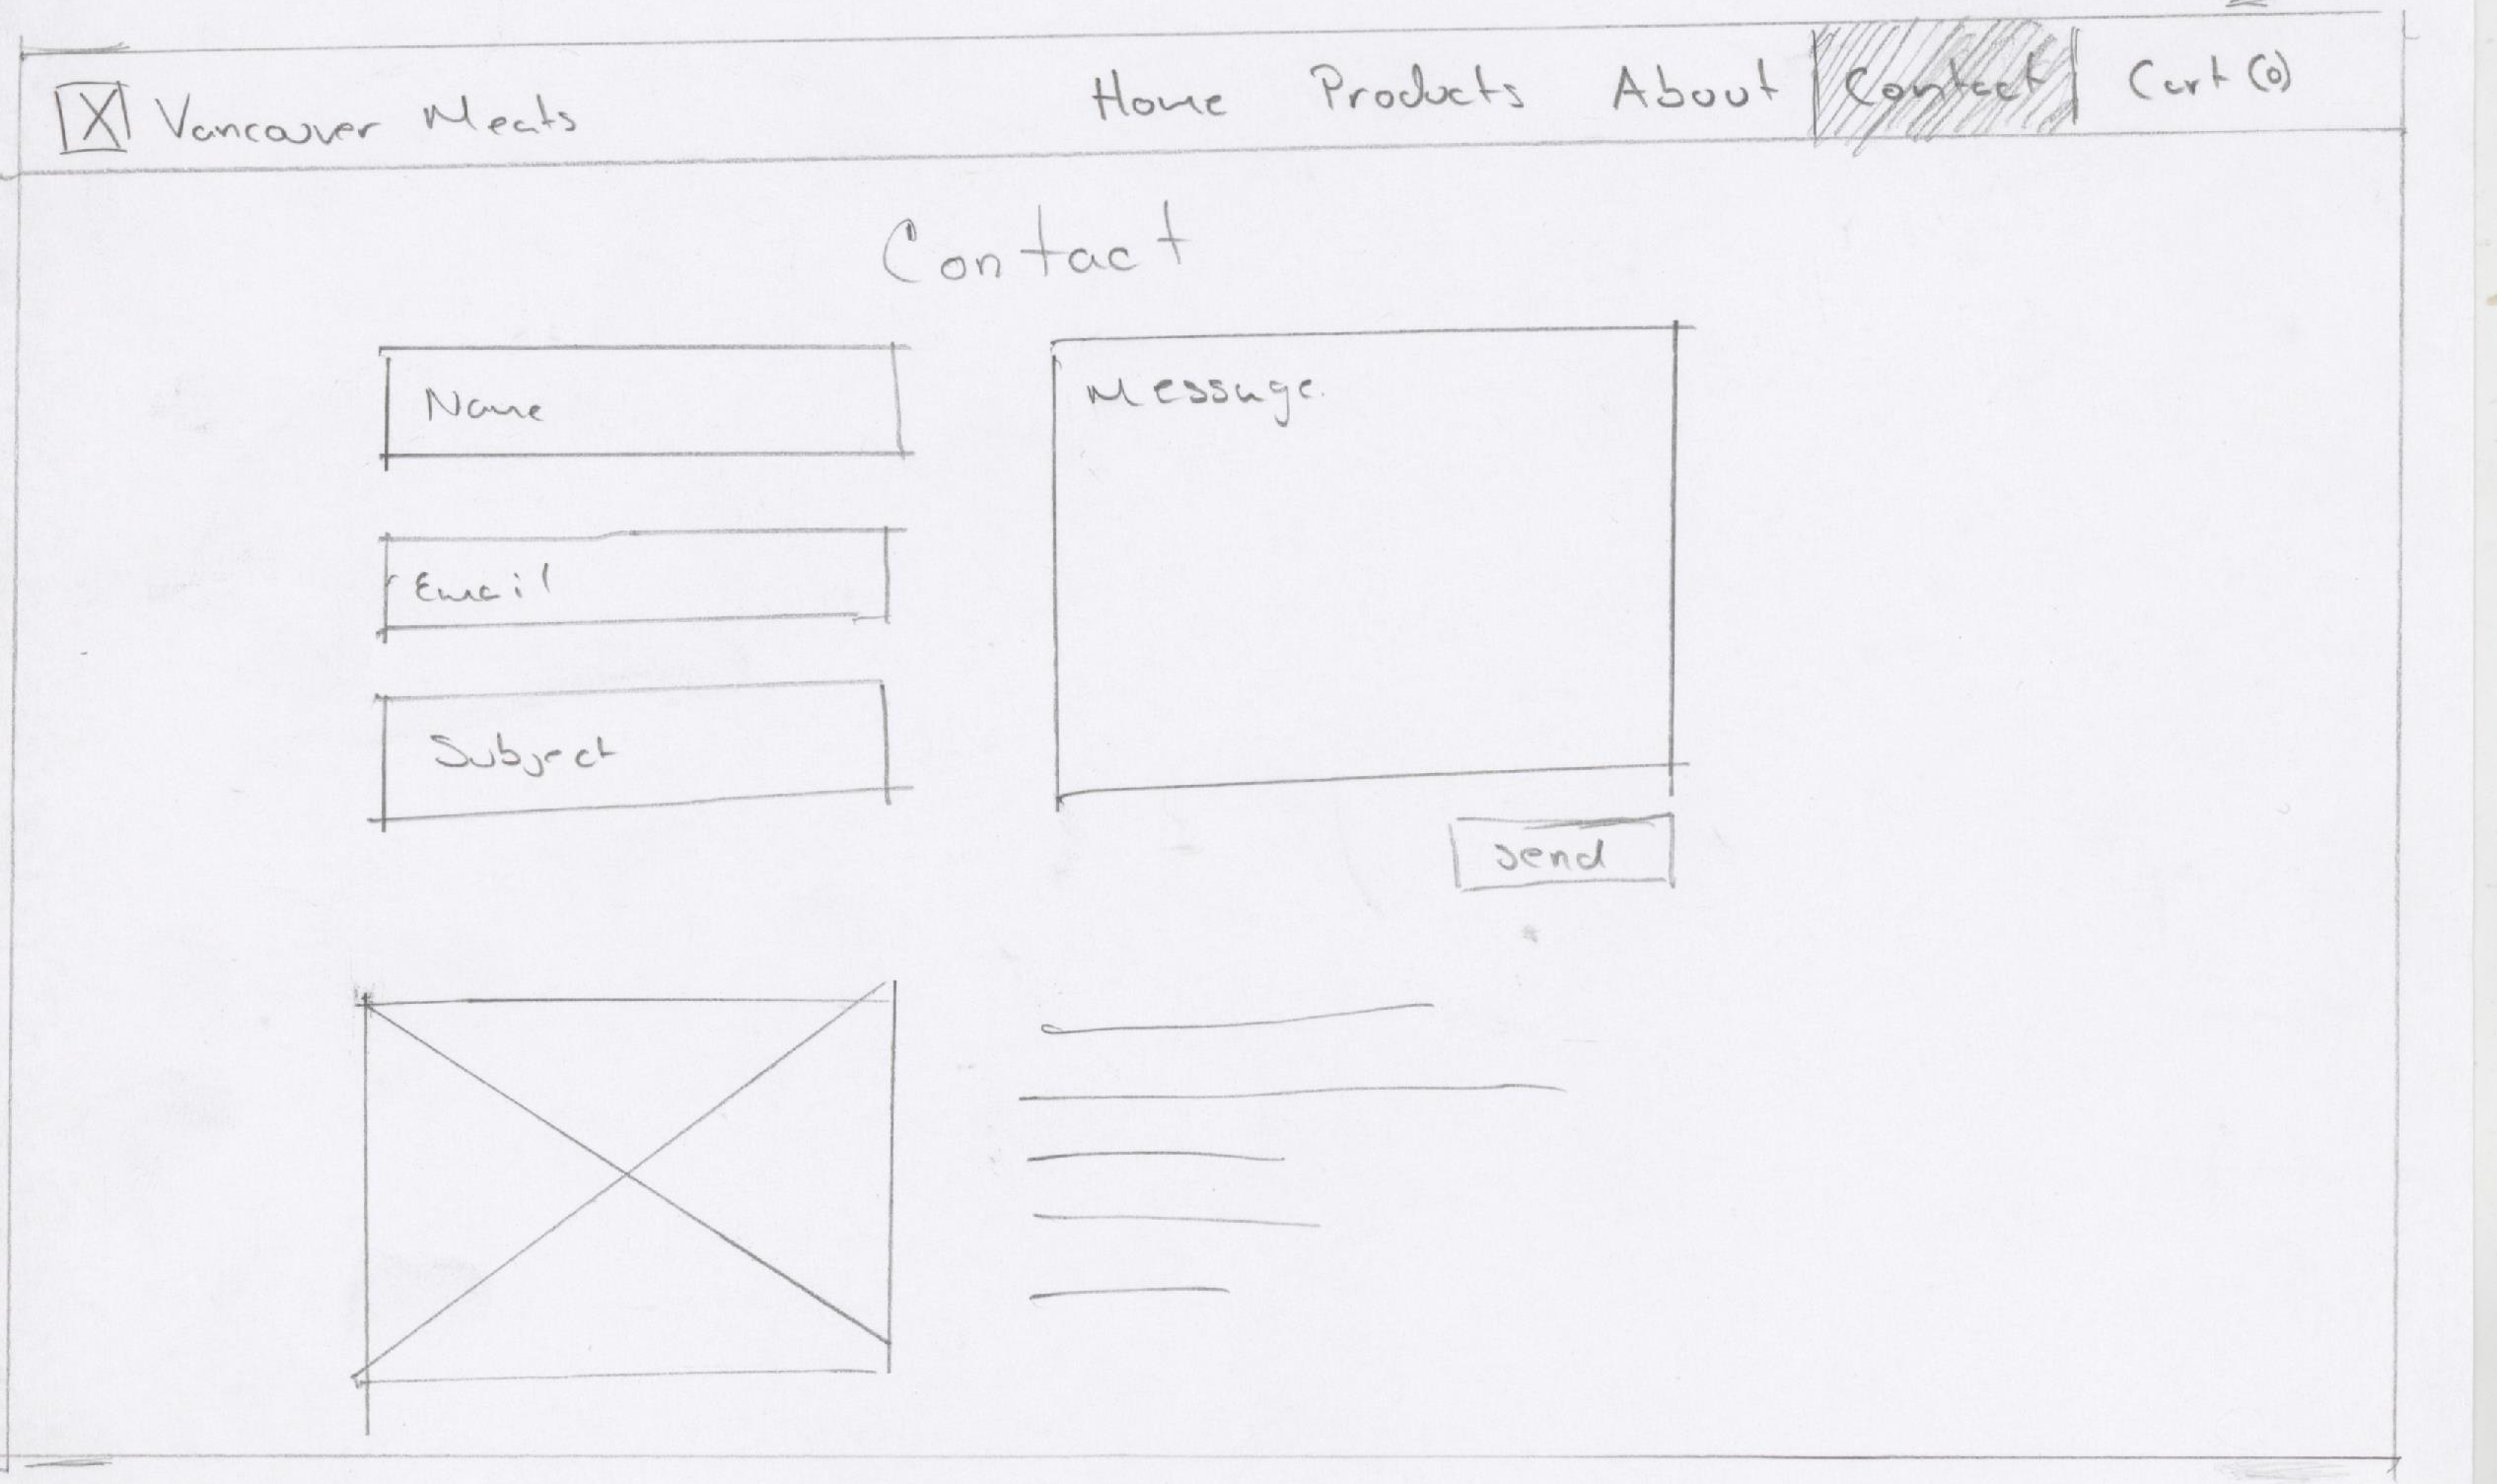 Vancouver Meats
Home Products About Contact Cart (0)
Contact
Name
Message
Email
Subject
send